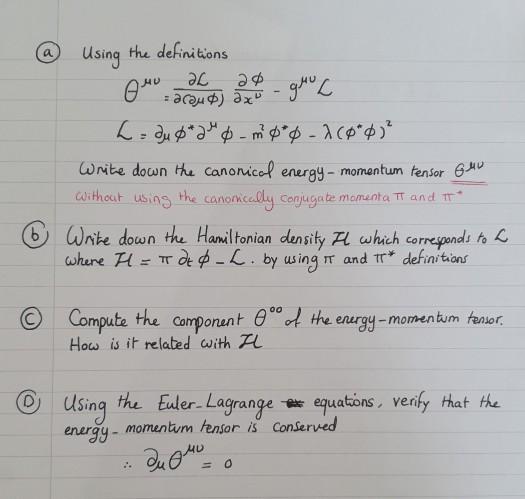 (a) Using the definitions
θ^{μν} = ∂L/∂(∂μ φ) ∂φ/∂x^ν - g^{μν} L
L = ∂μ φ* ∂^μ φ - m² φ*φ - λ(φ*φ)²
Write down the canonical energy-momentum tensor θ^{μν}
without using the canonically conjugate momenta π and π*
(b) Write down the Hamiltonian density H which corresponds to L
where H = π ∂t φ - L. by using π and π* definitions
(C) Compute the component θ^{00} of the energy-momentum tensor.
How is it related with H
(D) Using the Euler-Lagrange equations, verify that the
energy-momentum tensor is conserved
∴ ∂μ θ^{μν} = 0